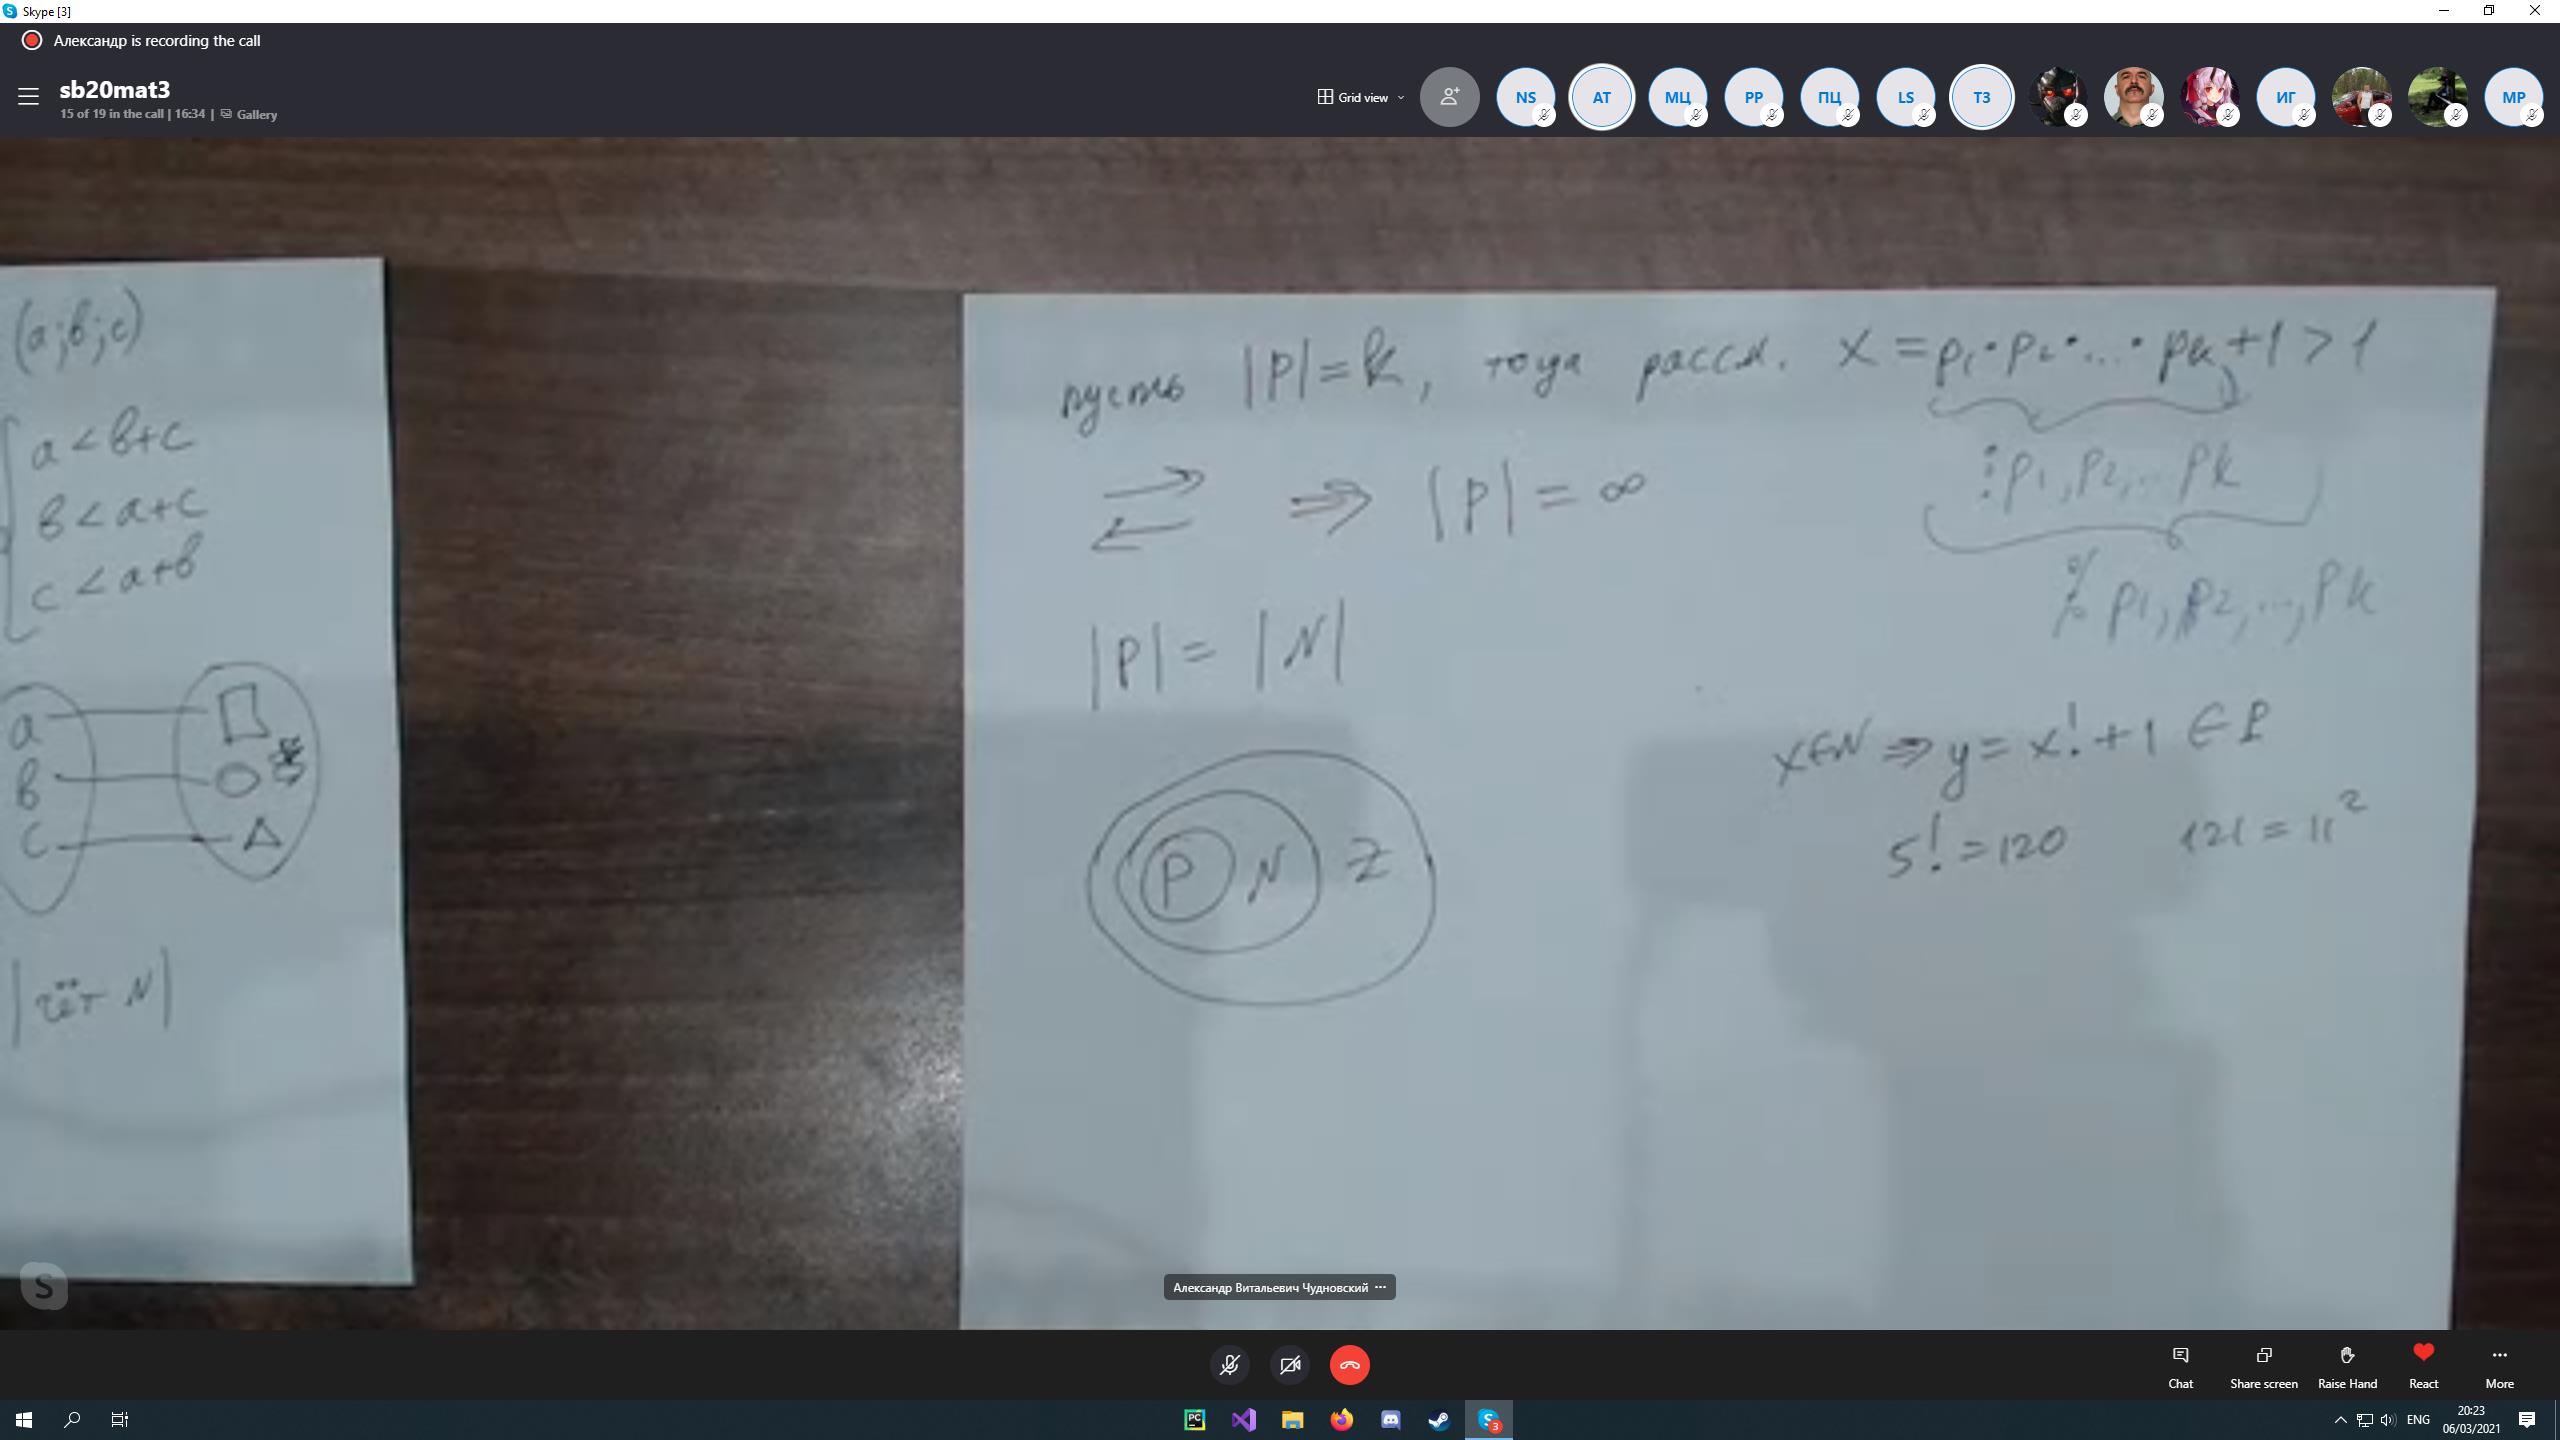 Skype [3]
Александр is recording the call
sb20mat3
15 of 19 in the call | 16:34 | Gallery
Grid view
NS AT МЦ PP ПЦ LS ТЗ ИГ MP
(a;b;c)
a < b+c
b < a+c
c < a+b
a
b
c
|чёт N|
пусть |P|=k, тогда рассм. x = p1·p2·...·pk+1>1
⋮ p1, p2, .. pk
⇒ |P| = ∞
p1, p2, ..., pk
|P| = |N|
x∈N ⇒ y = x!+1 ∈ P
5! = 120 121 = 11²
P N Z
Александр Витальевич Чудновский
Chat Share screen Raise Hand React More
PC S 3
ENG 20:23
06/03/2021